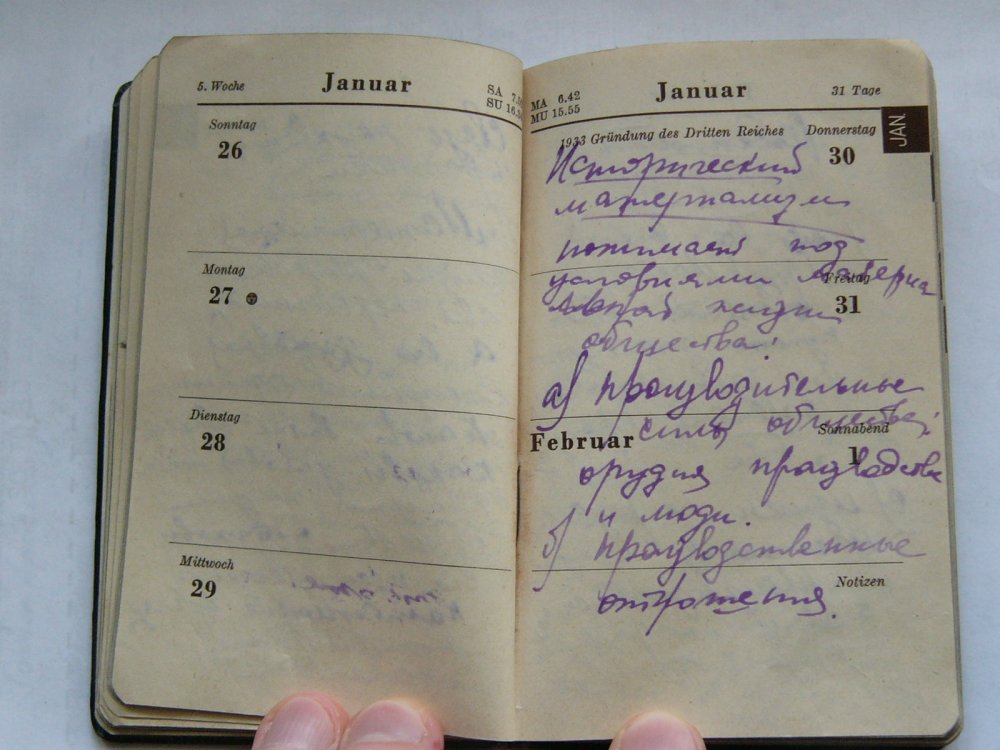 5. Woche Januar SA 7.
SU 16.
Sonntag
26
Montag
27
Dienstag
28
Mittwoch
29
MA 6.42 Januar 31 Tage
MU 15.55
JAN.
1933 Gründung des Dritten Reiches Donnerstag
30
Исторический
материализм
понимает под
условиями материа
Freitag
льной жизни
31
общества:
а) производительные
силы общества:
Sonnabend
Februar 1
орудия производства
и люди.
б) производственные
Notizen
отношения.